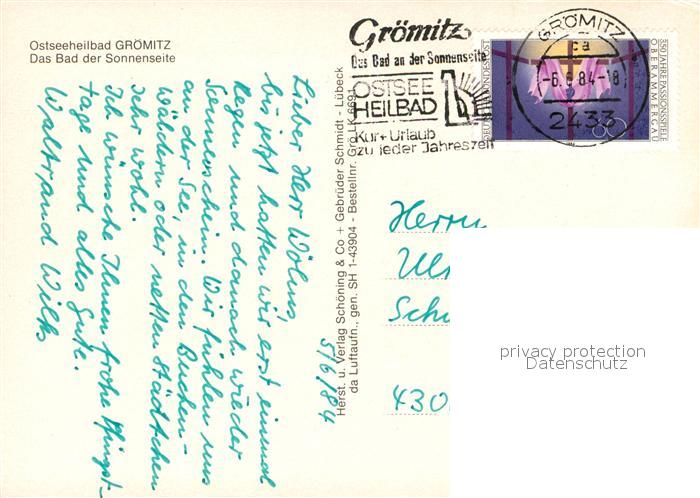 Ostseeheilbad GRÖMITZ
Das Bad der Sonnenseite
5/6/84
Lieber Herr Wölms,
bis jetzt hatten wir erst einmal
Regen und danach wieder
Sonnenschein. Wir fühlen uns
an der See, in den Buchen-
wäldern oder netten Städtchen
sehr wohl.
Ich wünsche Ihnen frohe Pfingst-
tage und alles Gute.
Waltraud Wilks
Herst. u. Verlag Schöning & Co + Gebrüder Schmidt - Lübeck
da Luftaufn., gen. SH 1-43904 - Bestellnr. Grö LK 6691
Grömitz
Das Bad an der Sonnenseite
OSTSEE
HEILBAD
Kur+Urlaub
zu jeder Jahreszeit
GRÖMITZ
ca
-6.6.84-18
2433
DEUTSCHE BUNDESPOST
550 JAHRE PASSIONSSPIELE
OBERAMMERGAU
60
Herrn
Ul
Sch
430
privacy protection
Datenschutz